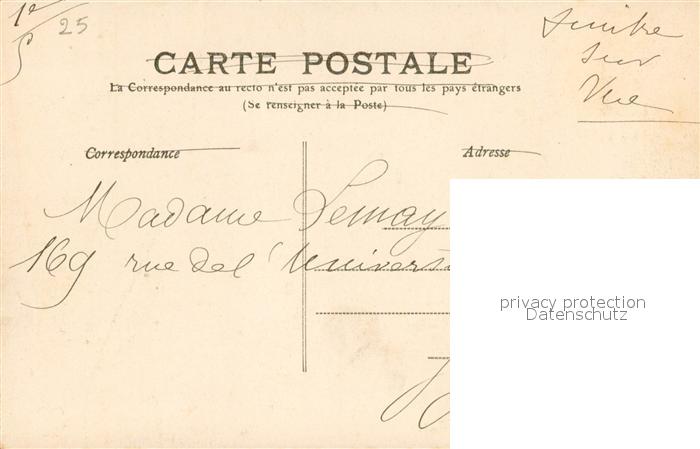 1e/5 25
timbre
sur
Vue
CARTE POSTALE
La Correspondance au recto n'est pas acceptée par tous les pays étrangers
(Se renseigner à la Poste)
Correspondance
Adresse
Madame Lemay
169 rue del'Univers
privacy protection
Datenschutz